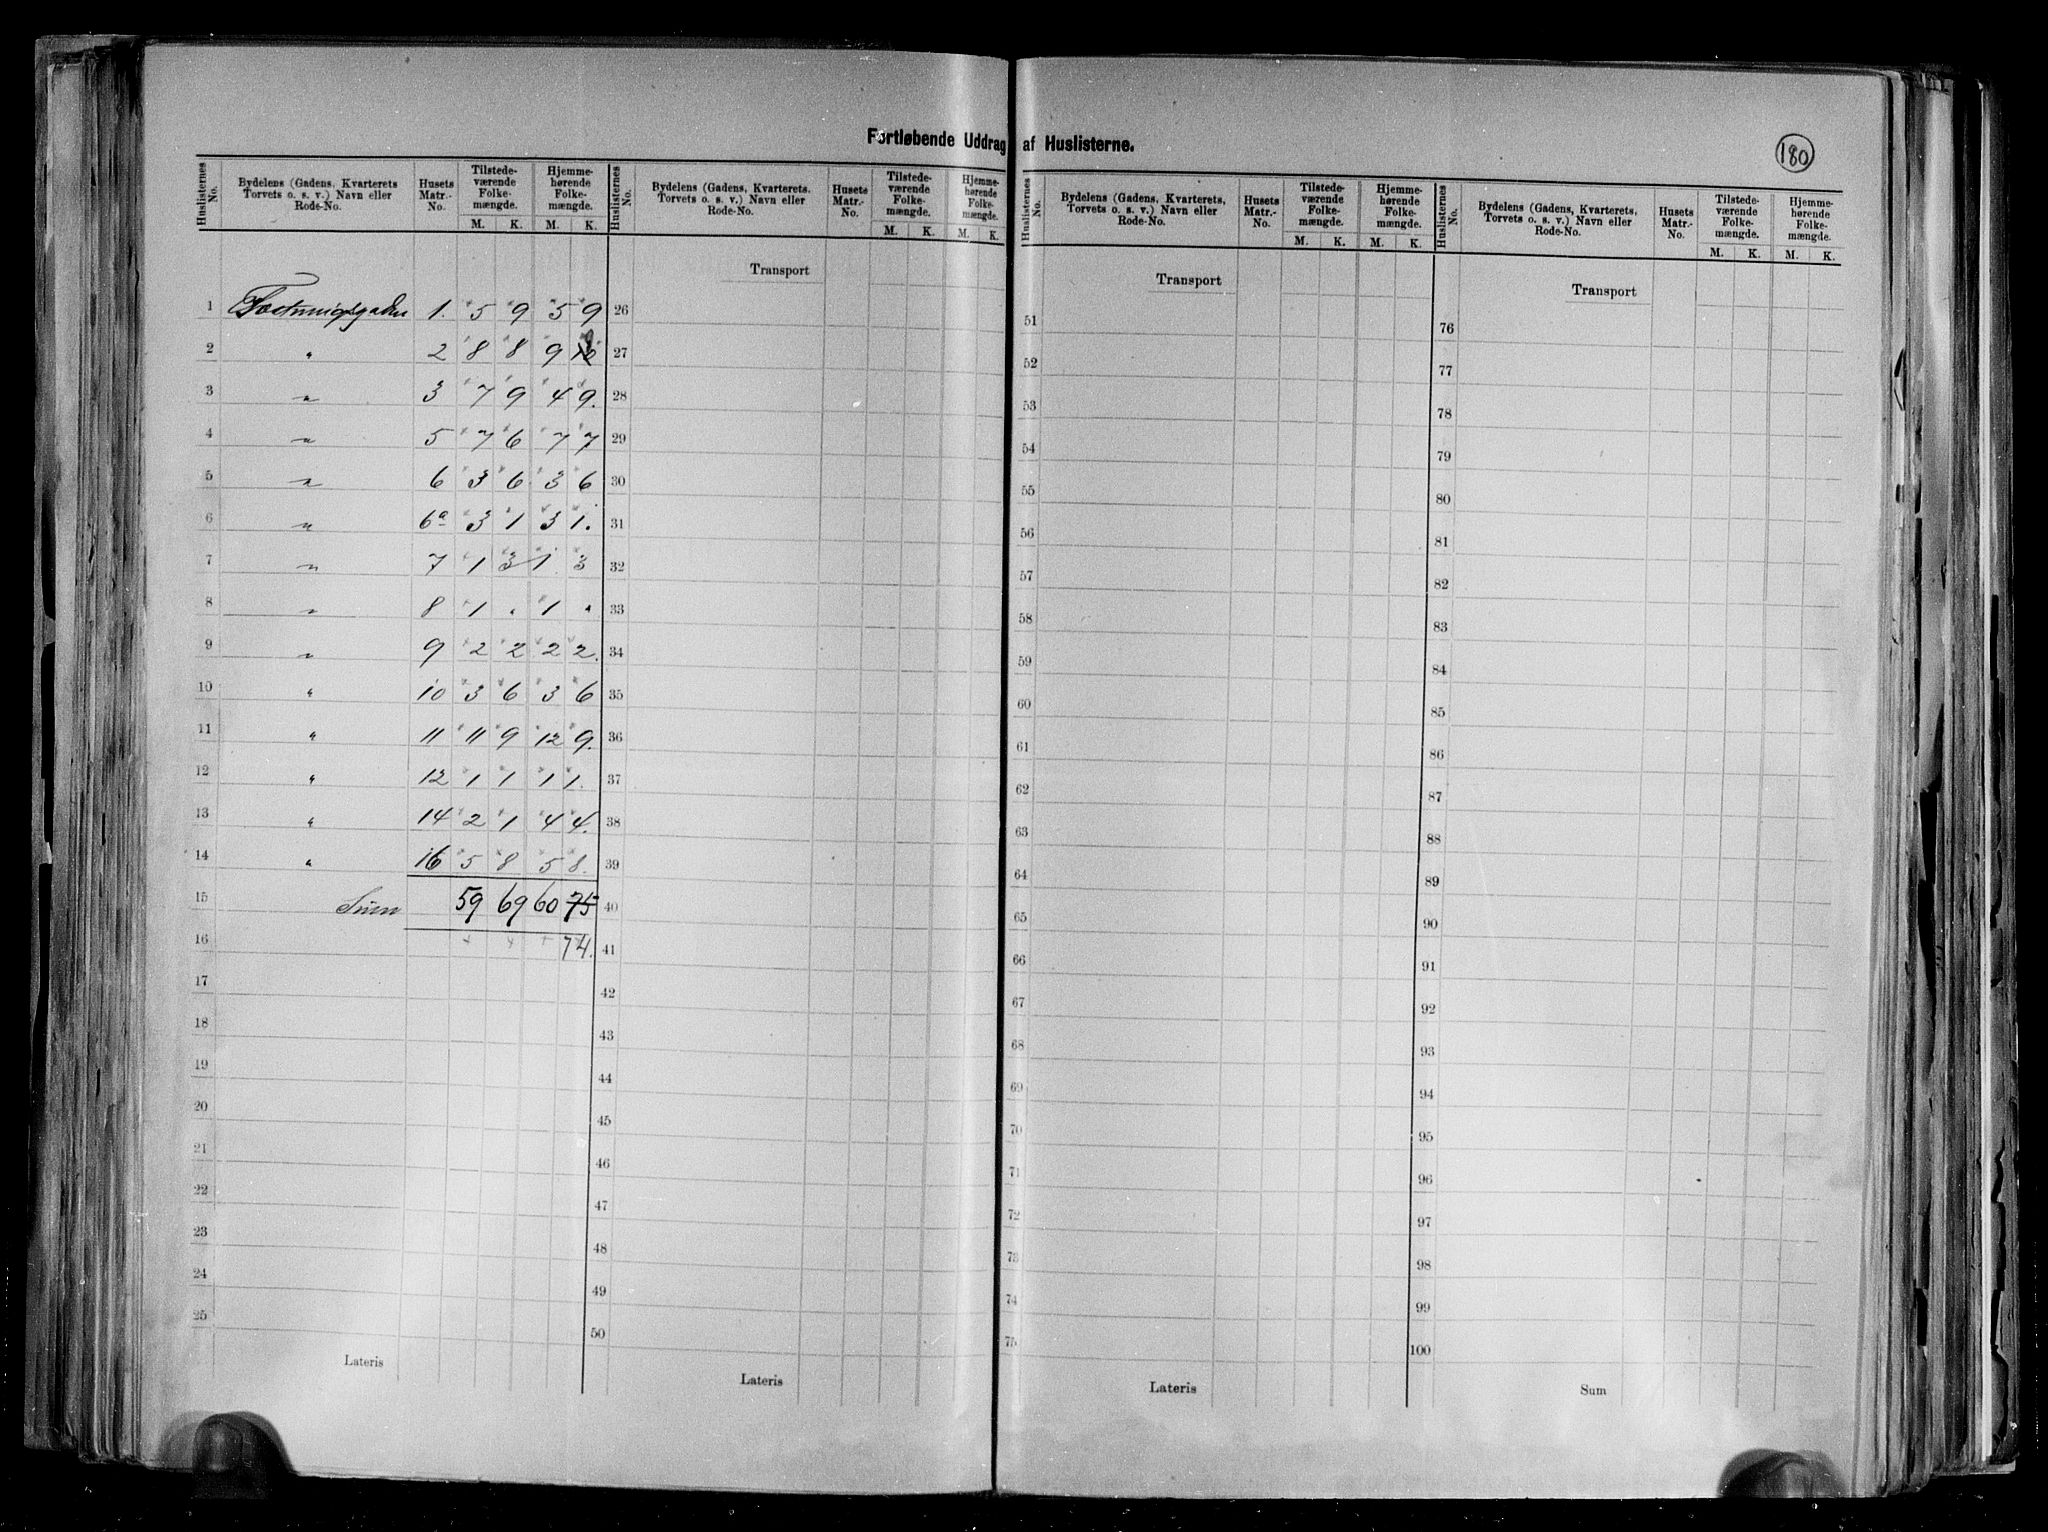 Fortløbende Uddrag af Huslisterne.
180
Huslisternes No. Bydelens (Gadens, Kvarterets Torvets o. s. v.) Navn eller Rode-No. Husets Matr.-No. Tilstede-værende Folke-mængde. M. K. Hjemme-hørende Folke-mængde. M. K.
Huslisternes No. Bydelens (Gadens, Kvarterets, Torvets o. s. v.) Navn eller Rode-No. Husets Matr.-No. Tilstede-værende Folke-mængde. M. K. Hjemme-hørende Folke-mængde. M. K.
Huslisternes No. Bydelens (Gadens, Kvarterets, Torvets o. s. v.) Navn eller Rode-No. Husets Matr.-No. Tilstede-værende Folke-mængde. M. K. Hjemme-hørende Folke-mængde. M. K.
Huslisternes No. Bydelens (Gadens, Kvarterets, Torvets o. s. v.) Navn eller Rode-No. Husets Matr.-No. Tilstede-værende Folke-mængde. M. K. Hjemme-hørende Folke-mængde. M. K.
Transport Transport Transport
1 Fæstningsgaden 1. 5 9 5 9 26 51 76
2 " 2 8 8 9 9 27 52 77
3 " 3 7 9 4 9. 28 53 78
4 " 5 7 6 7 7 29 54 79
5 " 6 3 6 3 6 30 55 80
6 " 6a 3 1 3 1. 31 56 81
7 " 7 1 3 1 3 32 57 82
8 " 8 1 . 1 . 33 58 83
9 " 9 2 2 2 2. 34 59 84
10 " 10 3 6 3 6 35 60 85
11 " 11 11 9 12 9. 36 61 86
12 " 12 1 1 1 1. 37 62 87
13 " 14 2 1 4 4. 38 63 88
14 " 16 5 8 5 8. 39 64 89
15 Sum 59 69 60 75 40 65 90
16 74. 41 66 91
17 42 67 92
18 43 68 93
19 44 69 94
20 45 70 95
21 46 71 96
22 47 72 97
23 48 73 98
24 49 74 99
25 50 75 100
Lateris Lateris Lateris Sum